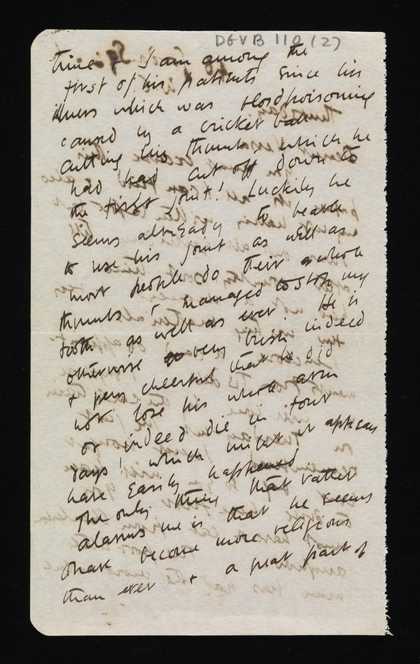 DGVB 110 (2)
time. I am among the
first of his patients since his
illness which was bloodpoisoning
caused by a cricket ball
cutting his thumb which he
had had cut off down to
the first joint! Luckily he
seems already to be able
to use his joint as well as
most people do their whole
thumbs & managed to stop my
tooth as well as ever. He is
otherwise very brisk indeed
& very cheerful that he did
not lose his whole arm
or indeed die in four
days! which might it appears
have easily happened
The only thing that rather
alarms me is that he seems
to have become more religious
than ever & a great part of